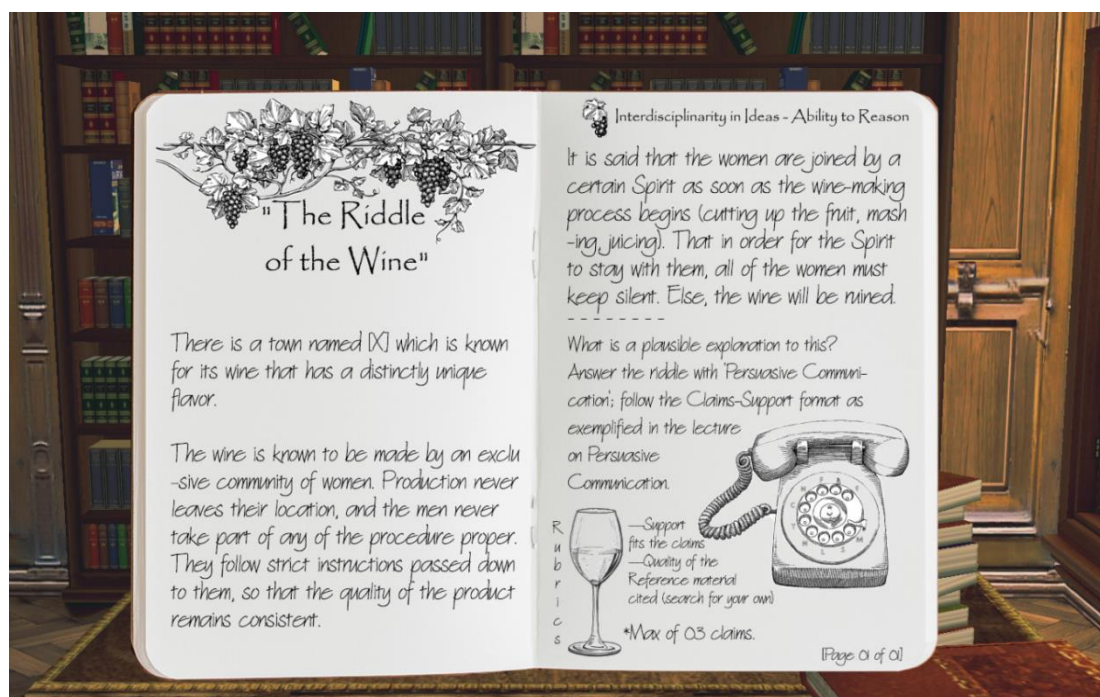 "The Riddle
of the Wine"
There is a town named [X] which is known
for its wine that has a distinctly unique
flavor.
The wine is known to be made by an exclu
-sive community of women. Production never
leaves their location, and the men never
take part of any of the procedure proper.
They follow strict instructions passed down
to them, so that the quality of the product
remains consistent.
Interdisciplinarity in Ideas - Ability to Reason
It is said that the women are joined by a
certain Spirit as soon as the wine-making
process begins (cutting up the fruit, mash
-ing, juicing). That in order for the Spirit
to stay with them, all of the women must
keep silent. Else, the wine will be ruined.
- - - - - - - -
What is a plausible explanation to this?
Answer the riddle with 'Persuasive Communi-
cation'; follow the Claims-Support format as
exemplified in the lecture
on Persuasive
Communication.
Rubrics
—Support
fits the claims
—Quality of the
Reference material
cited (search for your own)
*Max of 03 claims.
[Page 01 of 01]